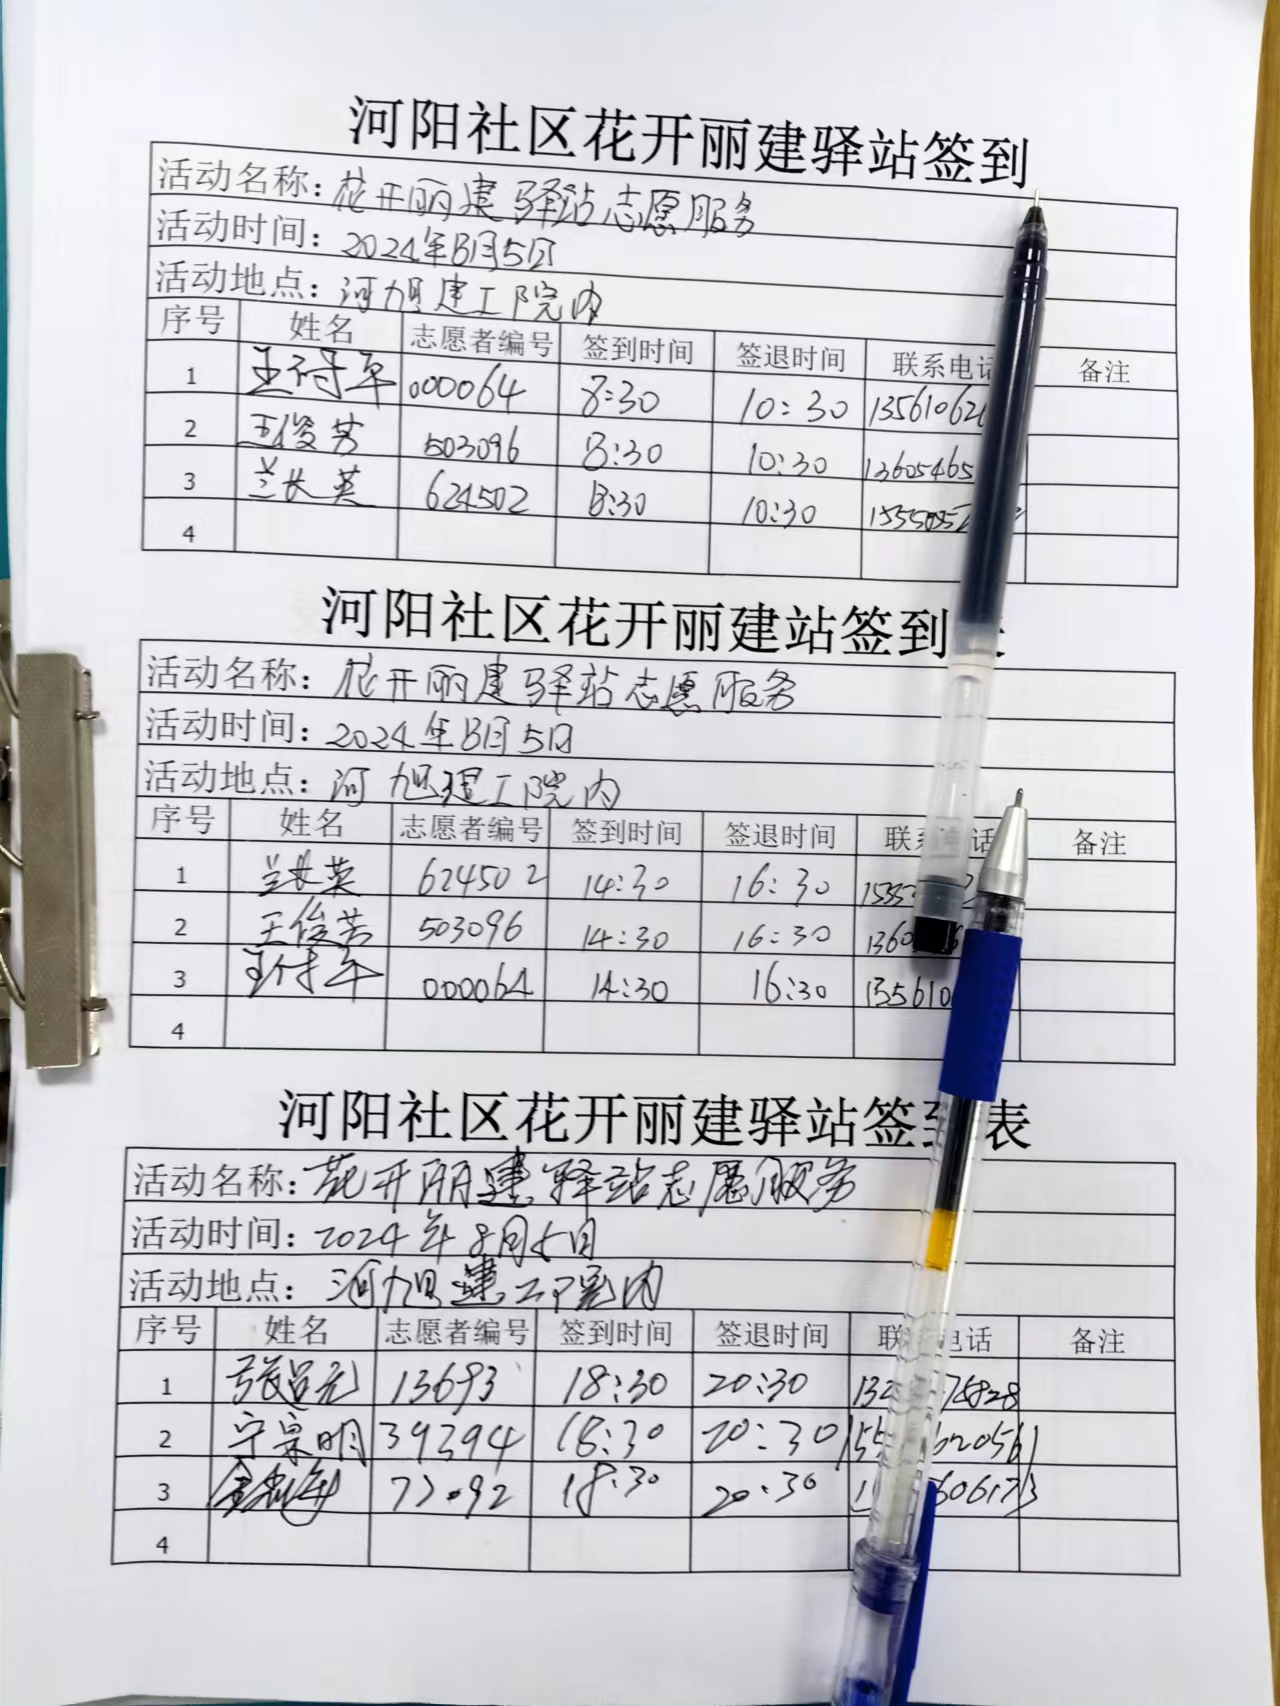 河阳社区花开丽建驿站签到
活动名称：花开丽建驿站志愿服务
活动时间：2024年8月5日
活动地点：河旭建工院内
序号 姓名 志愿者编号 签到时间 签退时间 联系电话 备注
1 王付军 000064 8:30 10:30 1356106
2 王俊芳 503096 8:30 10:30 13605465
3 兰长英 624502 8:30 10:30
4
河阳社区花开丽建站签到
活动名称：花开丽建驿站志愿服务
活动时间：2024年8月5日
活动地点：河旭建工院内
序号 姓名 志愿者编号 签到时间 签退时间 联 话 备注
1 兰长英 624502 14:30 16:30
2 王俊芳 503096 14:30 16:30 1360
3 王付军 000064 14:30 16:30 135610
4
河阳社区花开丽建驿站签 表
活动名称：花开丽建驿站志愿服务
活动时间：2024年8月5日
活动地点：河旭建工院内
序号 姓名 志愿者编号 签到时间 签退时间 联 电话 备注
1 13693 18:30 20:30 132 76828
2 宁宗明 39394 18:30 20:30 155 620561
3 18:30 20:30 606173
4